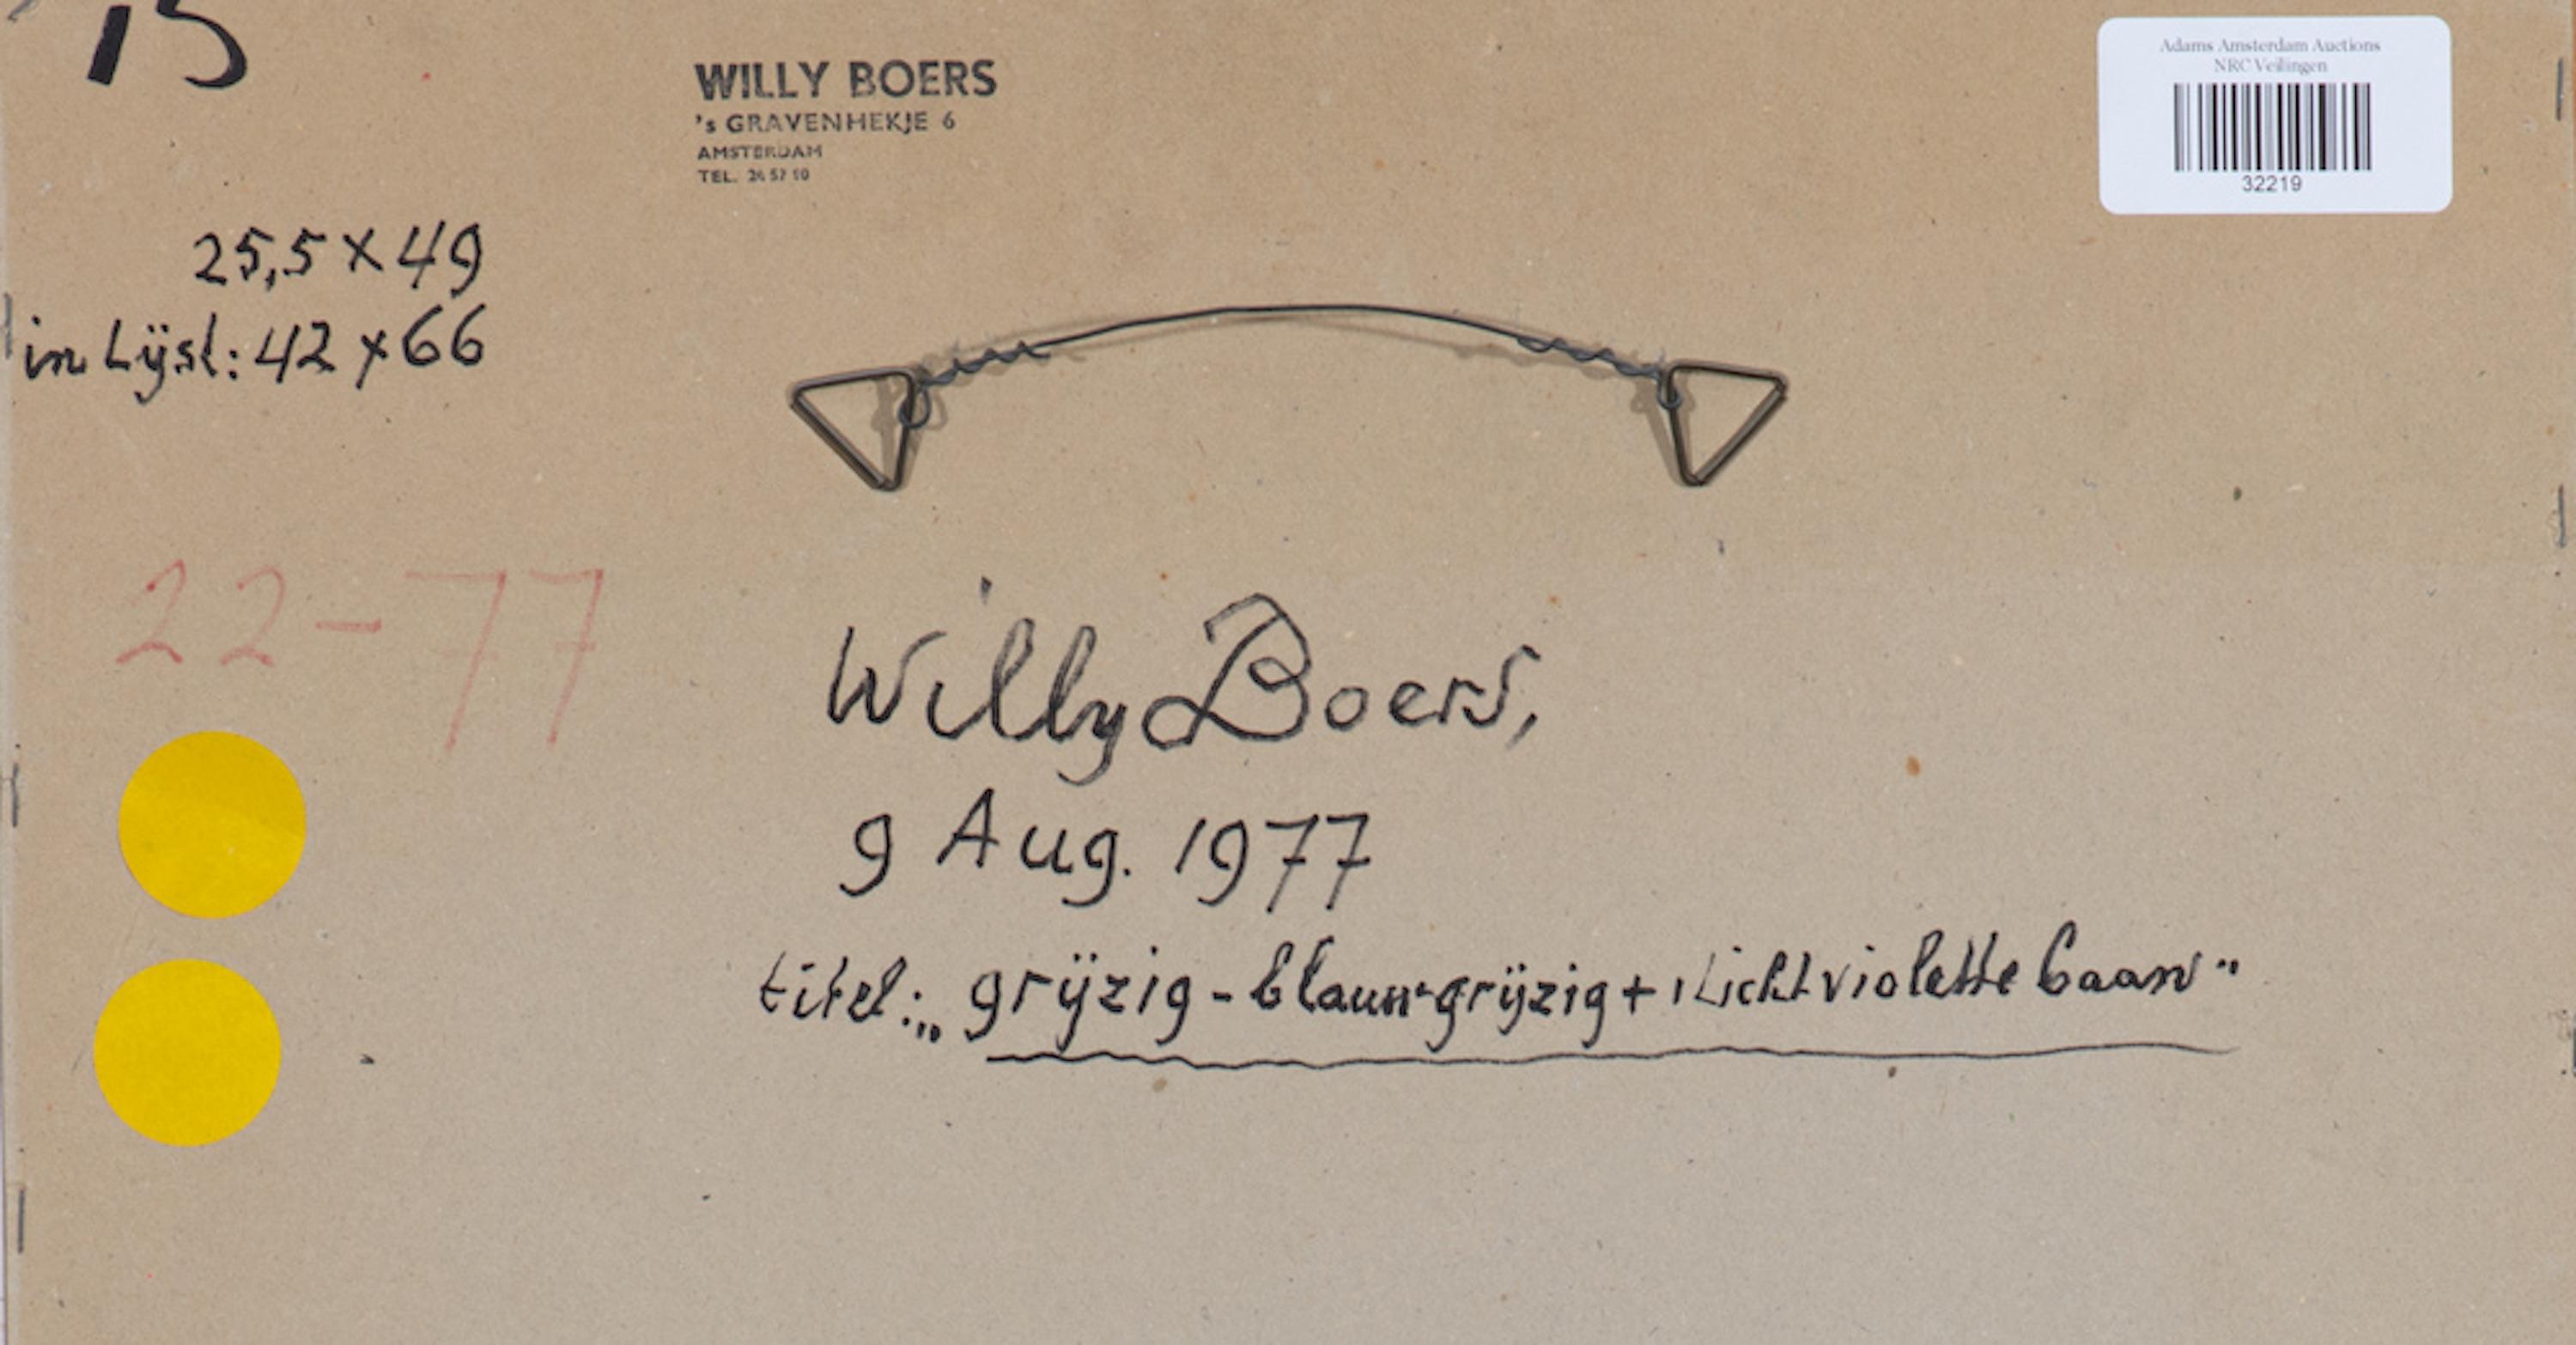 WILLY BOERS
's GRAVENHEKJE 6
AMSTERDAM
TEL.
Adams Amsterdam Auctions
NRC Veilingen
32219
25,5 x 49
in Lijst: 42 x 66
22-77
Willy Boers,
9 Aug. 1977
titel: „grijzig - blauw-grijzig + lichtviolette baan"